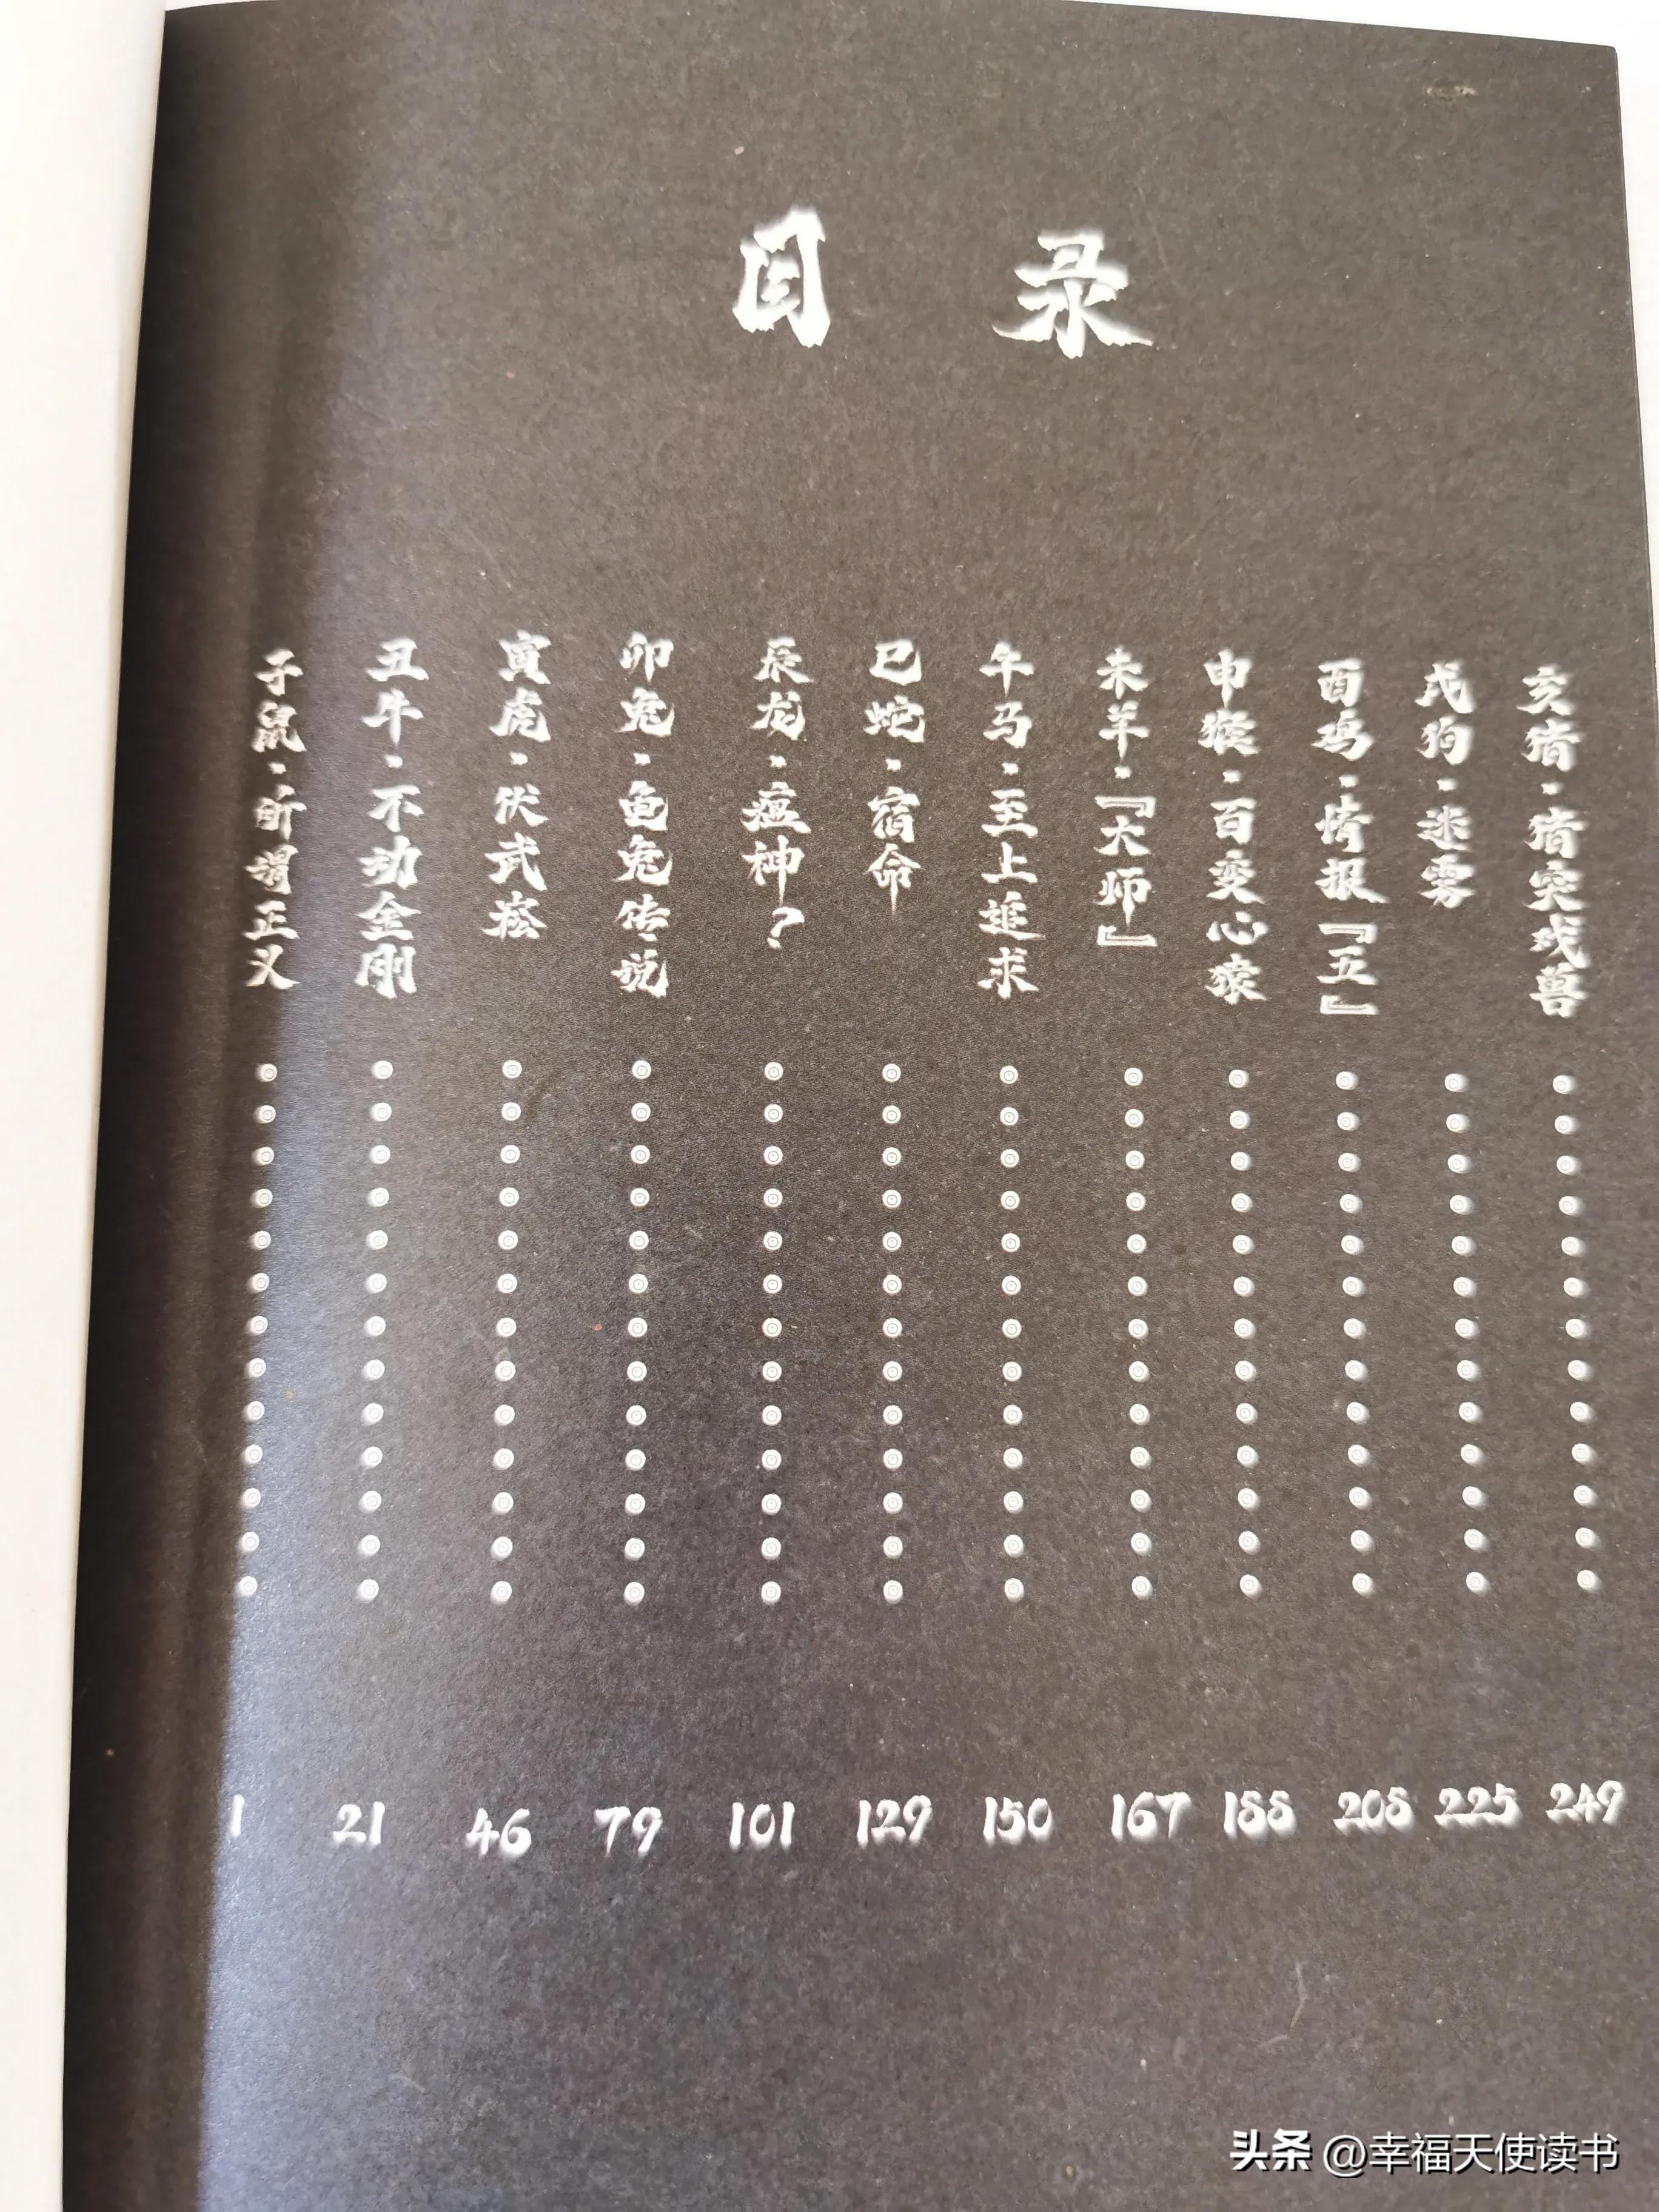 目 录
子鼠·所谓正义 1
丑牛·不动金刚 21
寅虎·伏武崧 46
卯兔·龟兔传说 79
辰龙·瘟神？ 101
巳蛇·宿命 129
午马·至上追求 150
未羊·『大师』 167
申猴·百变心猿 188
酉鸡·情报『五』 208
戌狗·迷雾 225
亥猪·猪突残兽 249
头条 @幸福天使读书